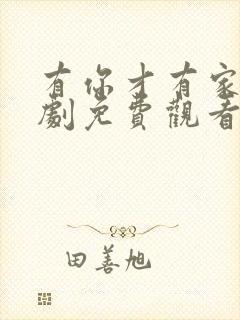 有你才有家
劇免費觀看
田善旭